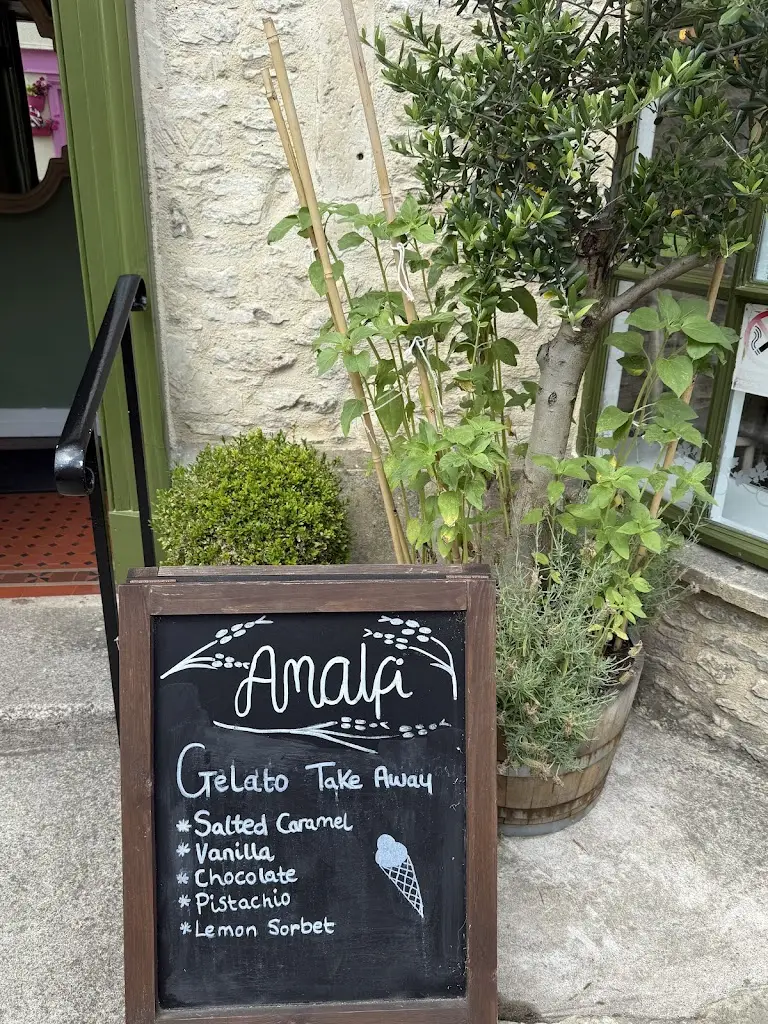 Amalfi
Gelato Take Away
* Salted Caramel
* Vanilla
* Chocolate
* Pistachio
* Lemon Sorbet